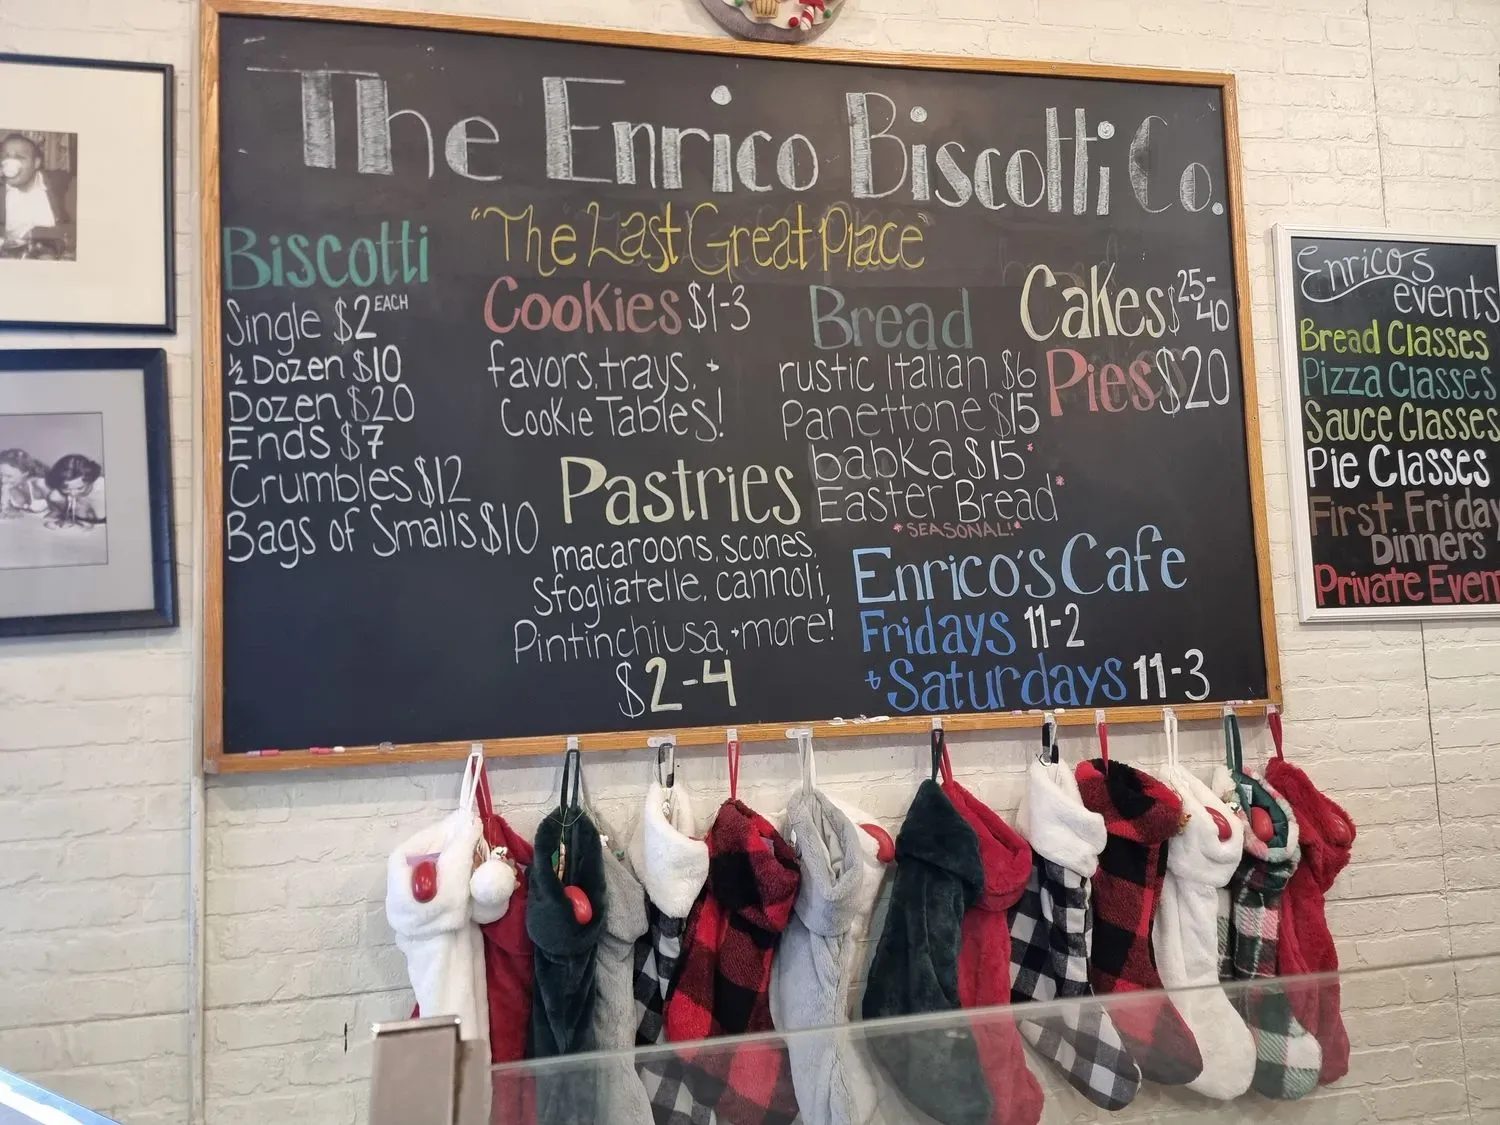 The Enrico Biscotti Co.
"The Last Great Place"
Biscotti
Single $2 EACH
½ Dozen $10
Dozen $20
Ends $7
Crumbles $12
Bags of Smalls $10
Cookies $1-3
favors, trays, +
Cookie Tables!
Pastries
macaroons, scones,
Sfogliatelle, cannoli,
Pintinchiusa, + more!
$2-4
Bread
rustic Italian $6
Panettone $15
babka $15*
Easter Bread*
*SEASONAL!*
Cakes $25-40
Pies $20
Enrico's Cafe
Fridays 11-2
+ Saturdays 11-3
Enrico's
events
Bread Classes
Pizza Classes
Sauce Classes
Pie Classes
First Friday
Dinners
Private Even